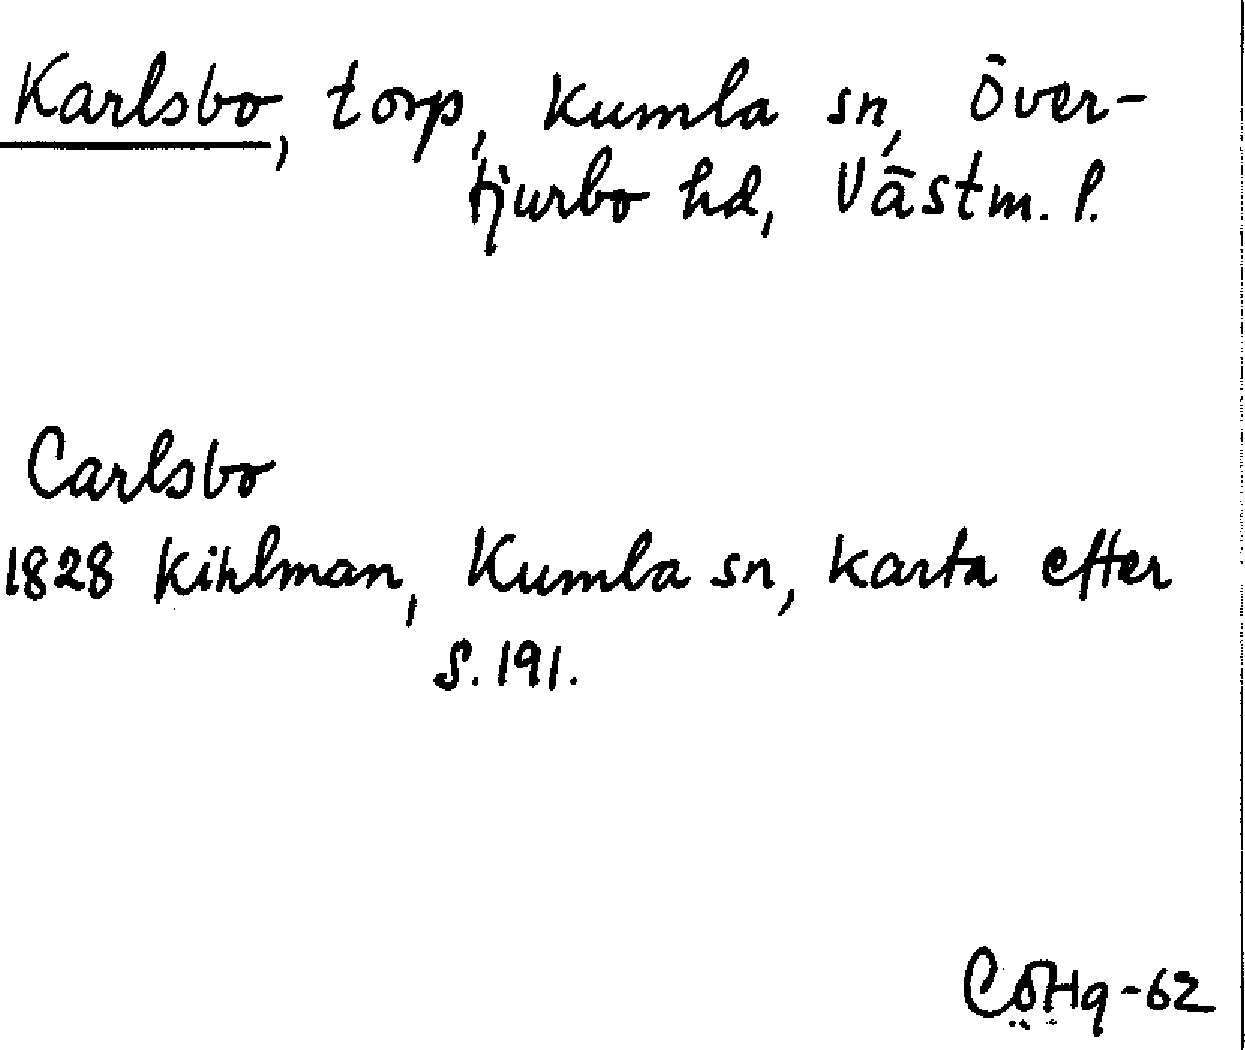 Karlsbo, torp, Kumla sn, Över-
tjurbo hd, Västm. l.
Carlsbo
1828 Kihlman, Kumla sn, karta efter
s. 191.